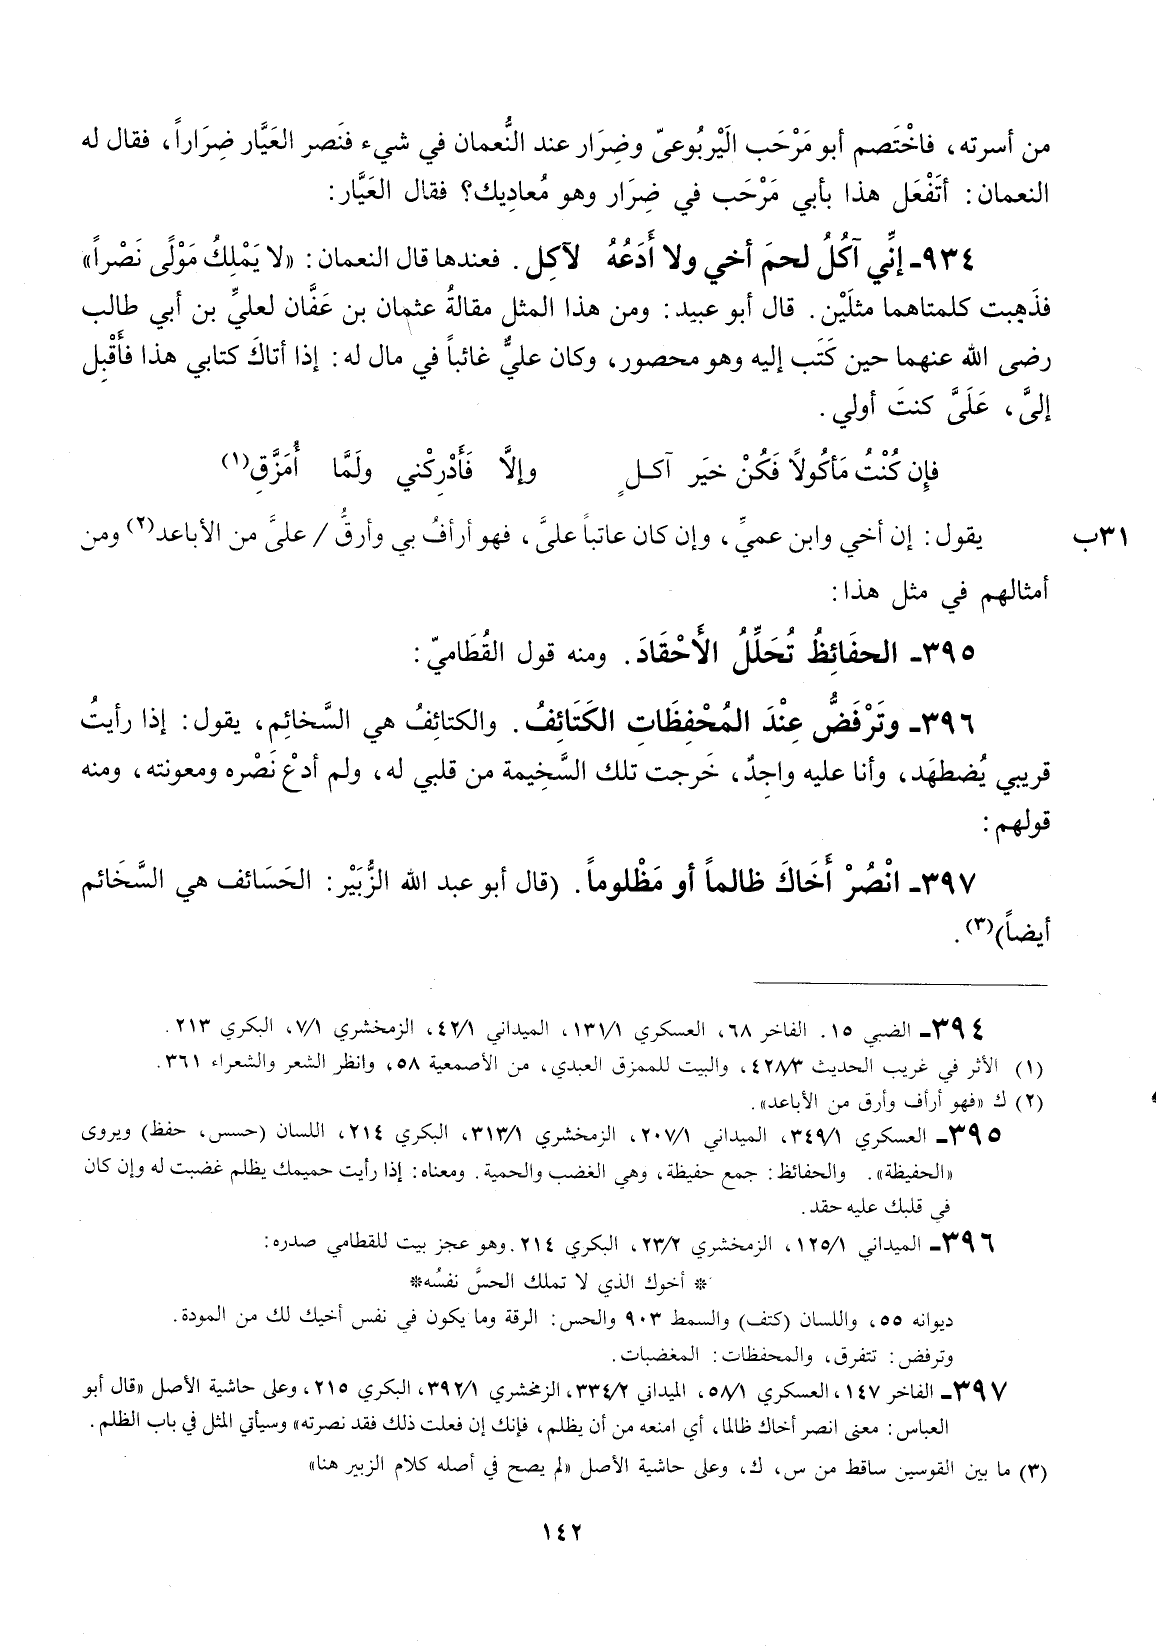 من أسرته، فاخْتَصم أبو مَرْحَب الَيْربُوعىّ وضِرَار عند النُّعمان في شيء فنَصر العَيَّار ضِرَاراً، فقال له
النعمان: أتَفْعَل هذا بأبي مَرْحَب في ضِرَار وهو مُعادِيك؟ فقال العَيَّار:
٩٣٤ـ إنِّي آكُلُ لحمَ أخي ولا أَدَعُهُ لآكِل. فعندها قال النعمان: «لا يَمْلِكُ مَوْلًى نَصْراً»
فذَهِبت كلمتاهما مثلَيْن. قال أبو عبيد: ومن هذا المثل مقالةُ عثمان بن عَفَّان لعليِّ بن أبي طالب
رضى الله عنهما حين كَتَب إليه وهو محصور، وكان عليٌّ غائباً في مال له: إذا أتاكَ كتابي هذا فأَقْبِل
إلىَّ، عَلَىَّ كنتَ أولي.
فإِن كُنْتُ مَأكُولاً فَكُنْ خيَر آكـلٍ وإلَّا فَأَدْرِكْني ولَمَّا أُمَزَّقِ(١)
٣١ب يقول: إن أخي وابن عميِّ، وإن كان عاتباً علىَّ، فهو أرأفُ بي وأرقُّ / علىَّ من الأباعد(٢) ومن
أمثالهم في مثل هذا:
٣٩٥ـ الحفَائِظُ تُحَلِّلُ الأَحْقَادَ. ومنه قول القُطَاميّ:
٣٩٦ـ وتَرْفَضُّ عِنْدَ المُحْفِظَاتِ الكَتَائِفُ. والكتائِفُ هي السَّخائِم، يقول: إذا رأيتُ
قريبي يُضطهَد، وأنا عليه واجِدٌ، خَرجت تلك السَّخِيمة من قلبي له، ولم أدعْ نَصْره ومعونته، ومنه
قولهم:
٣٩٧ـ انْصُرْ أَخَاكَ ظالماً أو مَظْلوماً. (قال أبو عبد الله الزُّبَيْر: الحَسَائف هي السَّخَائم
أيضاً)(٣).
٣٩٤ـ الضبي ١٥. الفاخر ٦٨، العسكري ١٣١/١، الميداني ٤٢/١، الزمخشري ٧/١، البكري ٢١٣.
(١) الأثر في غريب الحديث ٤٢٨/٣، والبيت للممزق العبدي، من الأصمعية ٥٨، وانظر الشعر والشعراء ٣٦١.
(٢) ك «فهو أرأف وأرق من الأباعد».
٣٩٥ـ العسكري ٣٤٩/١، الميداني ٢٠٧/١، الزمخشري ٣١٣/١، البكري ٢١٤، اللسان (حسس، حفظ) ويروى
«الحفيظة». والحفائظ: جمع حفيظة، وهي الغضب والحمية. ومعناه: إذا رأيت حميمك يظلم غضبت له وإن كان
في قلبك عليه حقد.
٣٩٦ـ الميداني ١٢٥/١، الزمخشري ٢٣/٢، البكري ٢١٤.وهو عجز بيت للقطامي صدره:
* أخوك الذي لا تملك الحسَّ نفسُه*
ديوانه ٥٥، واللسان (كتف) والسمط ٩٠٣ والحس: الرقة وما يكون في نفس أخيك لك من المودة.
وترفض: تتفرق، والمحفظات: المغضبات.
٣٩٧ـ الفاخر ١٤٧، العسكري ٥٨/١، الميداني ٣٣٤/٢، الزمخشري ٣٩٢/١، البكري ٢١٥، وعلى حاشية الأصل «قال أبو
العباس: معنى انصر أخاك ظالما، أي امنعه من أن يظلم، فإنك إن فعلت ذلك فقد نصرته» وسيأتي المثل في باب الظلم.
(٣) ما بين القوسين ساقط من س، ك، وعلى حاشية الأصل «لم يصح في أصله كلام الزبير هنا»
١٤٢